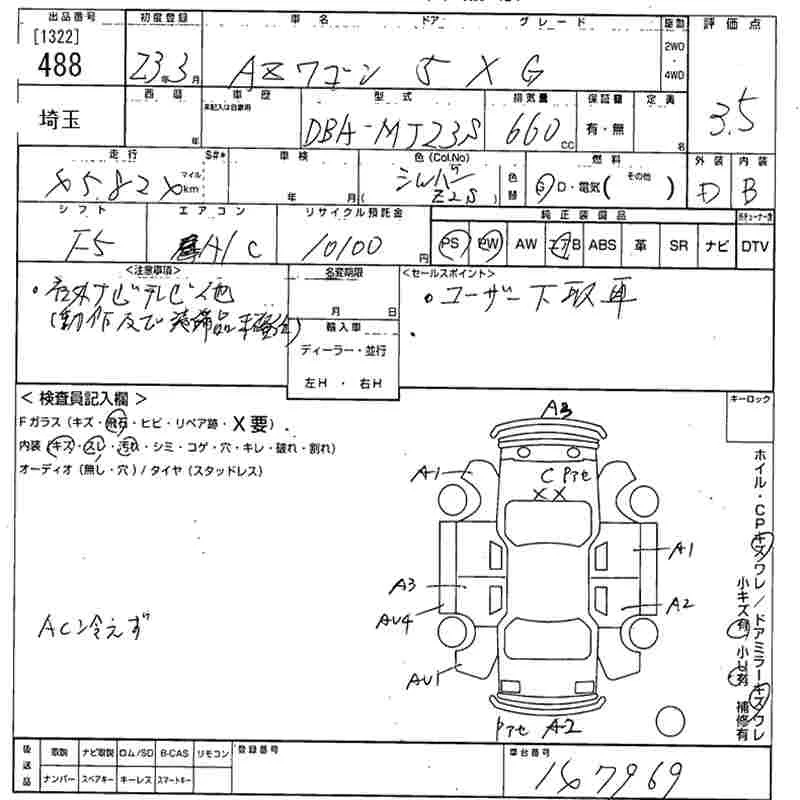 出品番号 初度登録 車名 ドア グレード 駆動 評価点
[1322]
488 23年3月 AZワゴン 5 XG 2WD・4WD 3.5
埼玉 西暦 年 車歴 未記入は自家用 型式 排気量 保証書 定員
DBA-MJ23S 660 CC 有・無 名
走行 S#* 車検 色(Col.No) 燃料 外装 内装
マイル km 年 月 シルバー Z2S 色替 G D・電気( その他 ) D B
シフト エアコン リサイクル預託金 純正装備品
F5 A/C 10100 円 PS PW AW エアB ABS 革 SR ナビ DTV
<注意事項> 名変期限 <セールスポイント>
・社外ナビテレビ他 月 日 ・ユーザー下取車
(動作及び装備品未確認) 輸入車
ディーラー・並行
左H・右H
<検査員記入欄> キーロック
Fガラス(キズ・飛石・ヒビ・リペア跡・X要)
内装(キズ・スレ・汚れ・シミ・コゲ・穴・キレ・破れ・割れ)
オーディオ(無し・穴)/タイヤ(スタッドレス)
A3
A1 CPアセ
XX
A1
A3 A2
AU4
AU1
Pアセ A-2
ACン冷えず
ホイル・CPキズワレ/ドアミラーキズワレ
小キズ有 小U有 補修有
後送品 取説 ナビ取説 ロム/SD B-CAS リモコン 登録番号 車台番号
ナンバー スペアキー キーレス スマートキー 167969